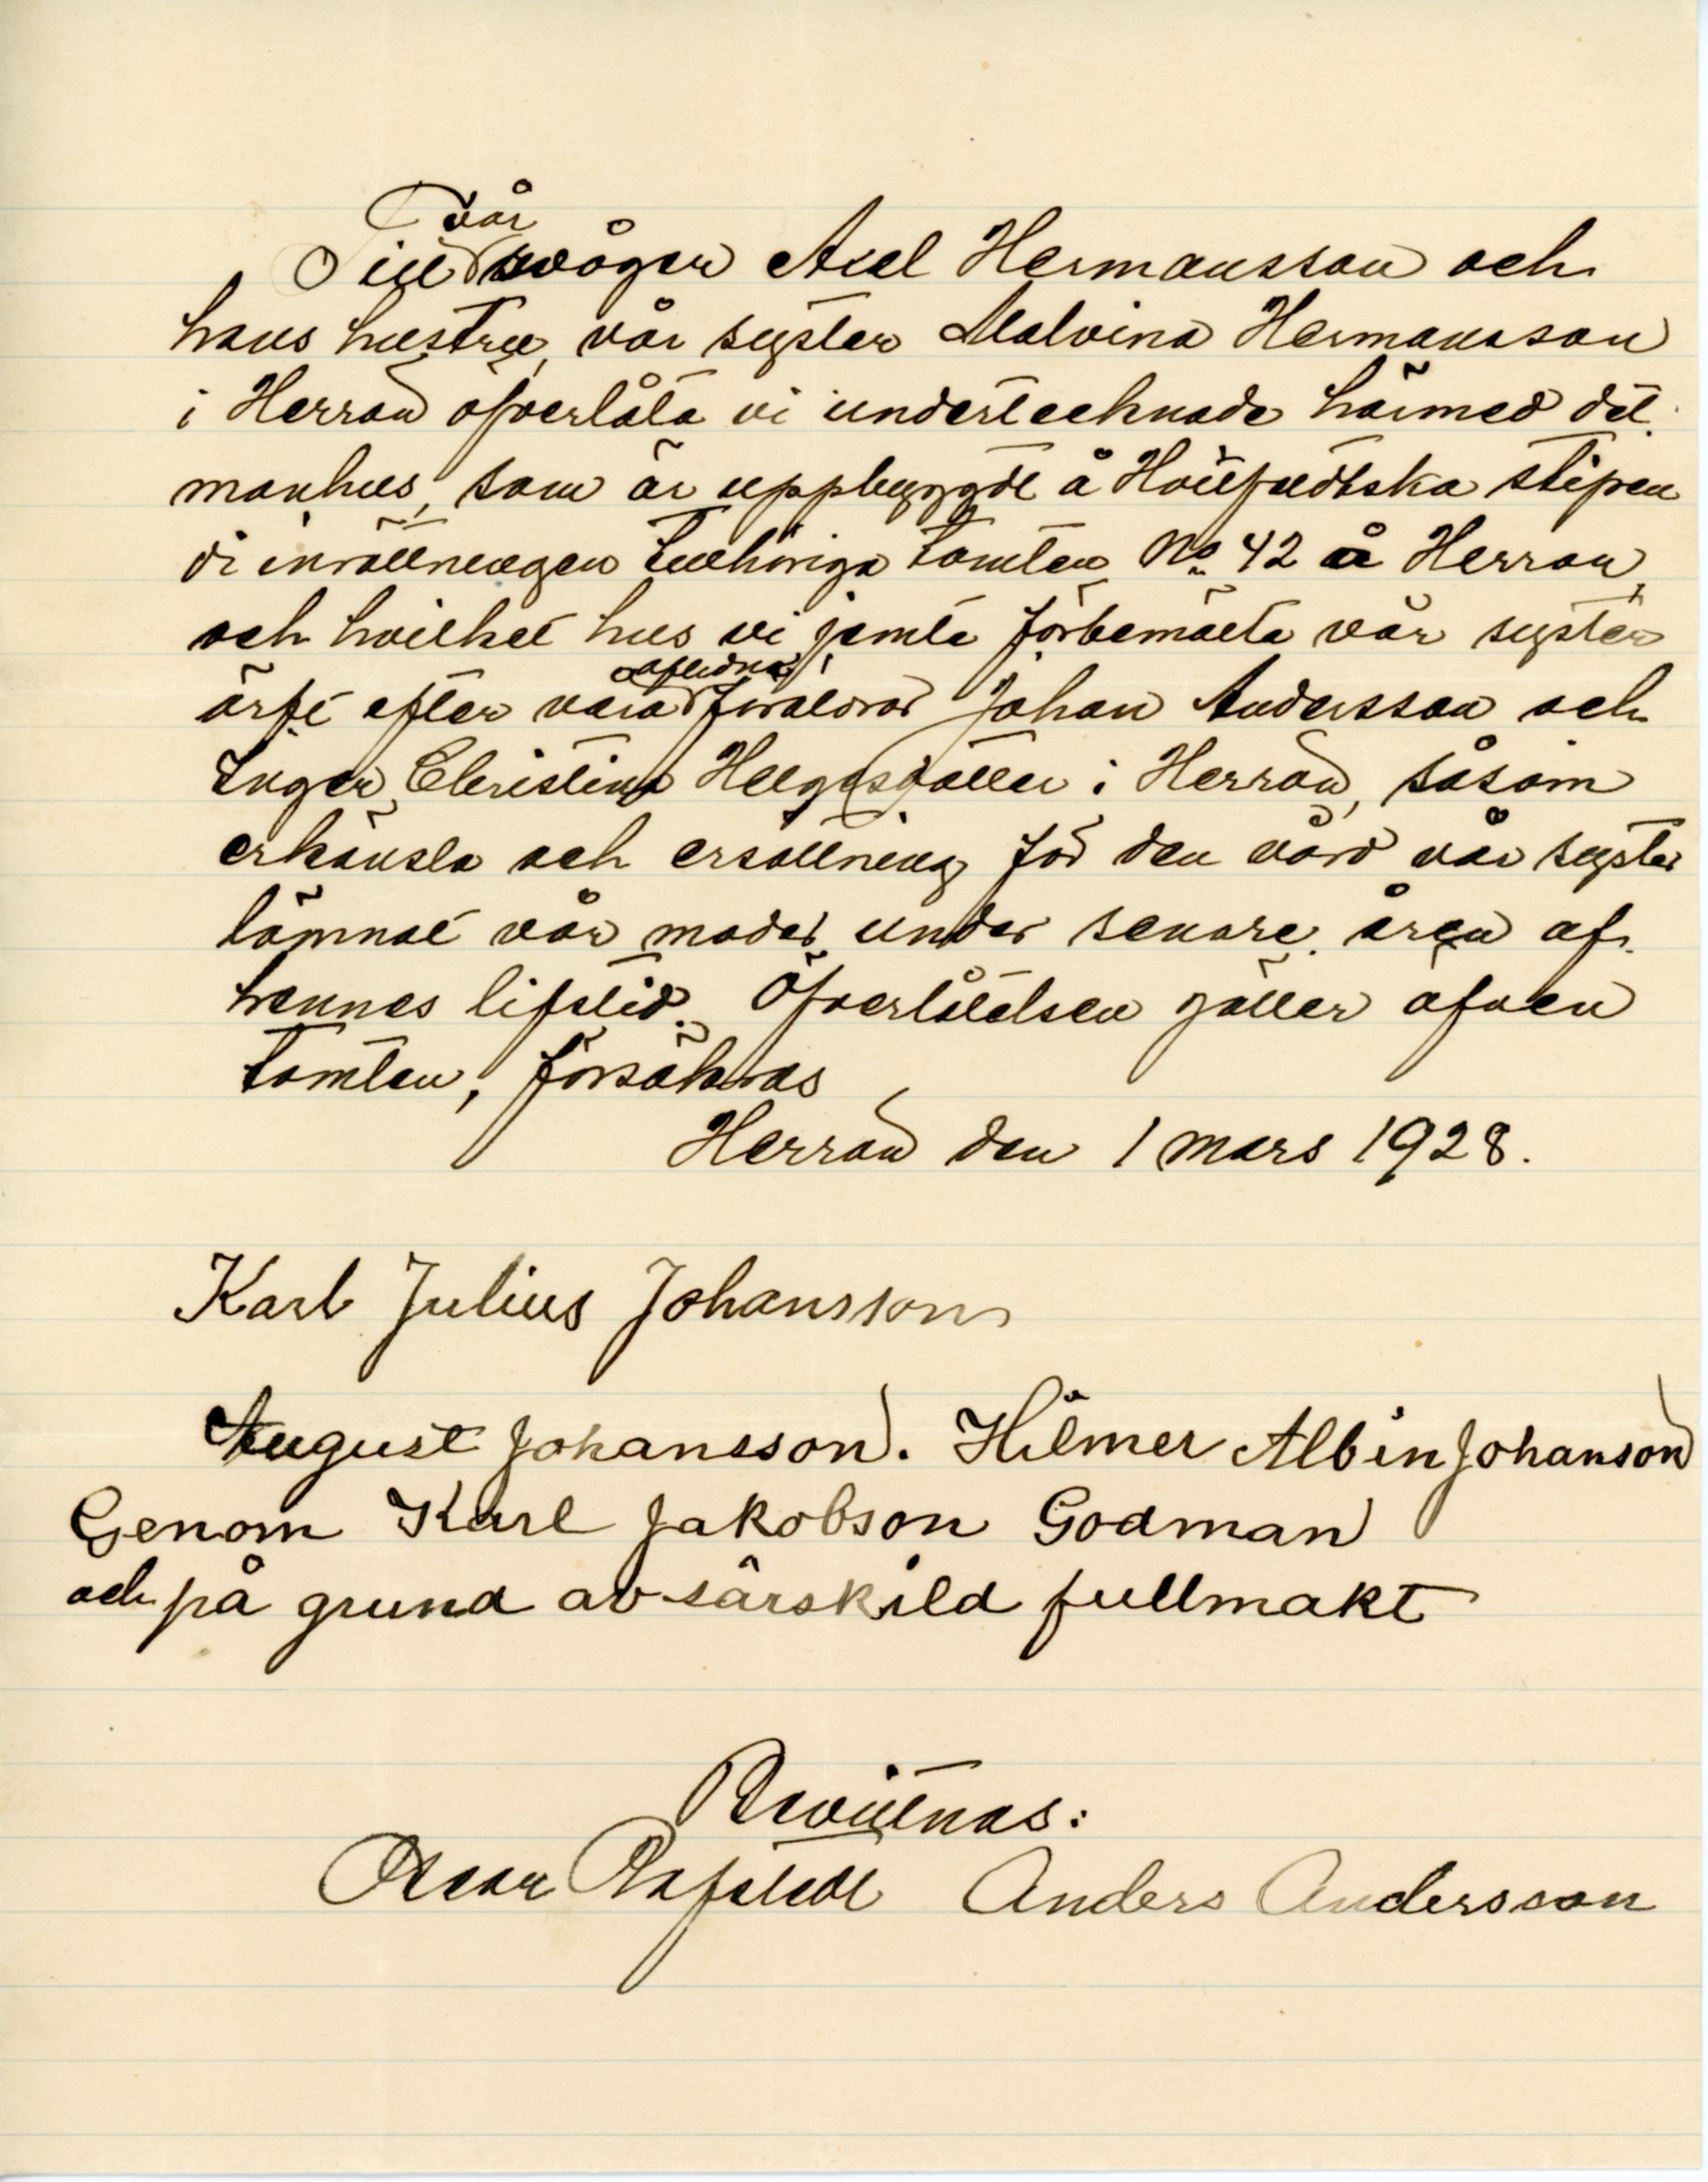 Till vår svåger Axel Hermansson och
hans hustru, vår syster Malvina Hermansson
i Herrön öfverlåta vi undertecknade härmed det
manhus, som är uppbyggdt å Hvitfeldtska stipen
di inrättningen tillhöriga tomten No 42 å Herrön,
och hvilket hus vi jemte förbemälta vår syster
ärft efter våra aflidna föräldrar Johan Andersson och
Inger Christina Helgesdotter i Herrön, såsom
erkänsla och ersättning för den vård vår syster
lämnat vår moder under senare åren af
hennes lifstid. Öfverlåtelsen gäller äfven
tomten, försäkras
Herrön den 1 mars 1928.
Karl Julius Johansson
August Johansson. Hilmer Albin Johanson
Genom Karl Jakobson Godman
och på grund av särskild fullmakt
Bevittnas:
Oscar Rafstedt Anders Andersson